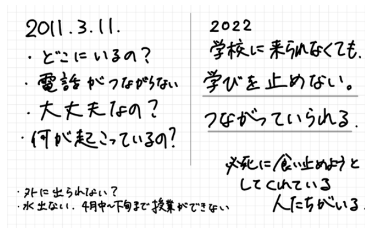 2011.3.11.
・どこにいるの?
・電話がつながらない
・大丈夫なの?
・何が起こっているの?
・外に出られない?
・水出ない、4月中〜下旬まで授業ができない
2022
学校に来られなくても、
学びを止めない。
つながっていられる。
必死に食い止めようと
してくれている
人たちがいる